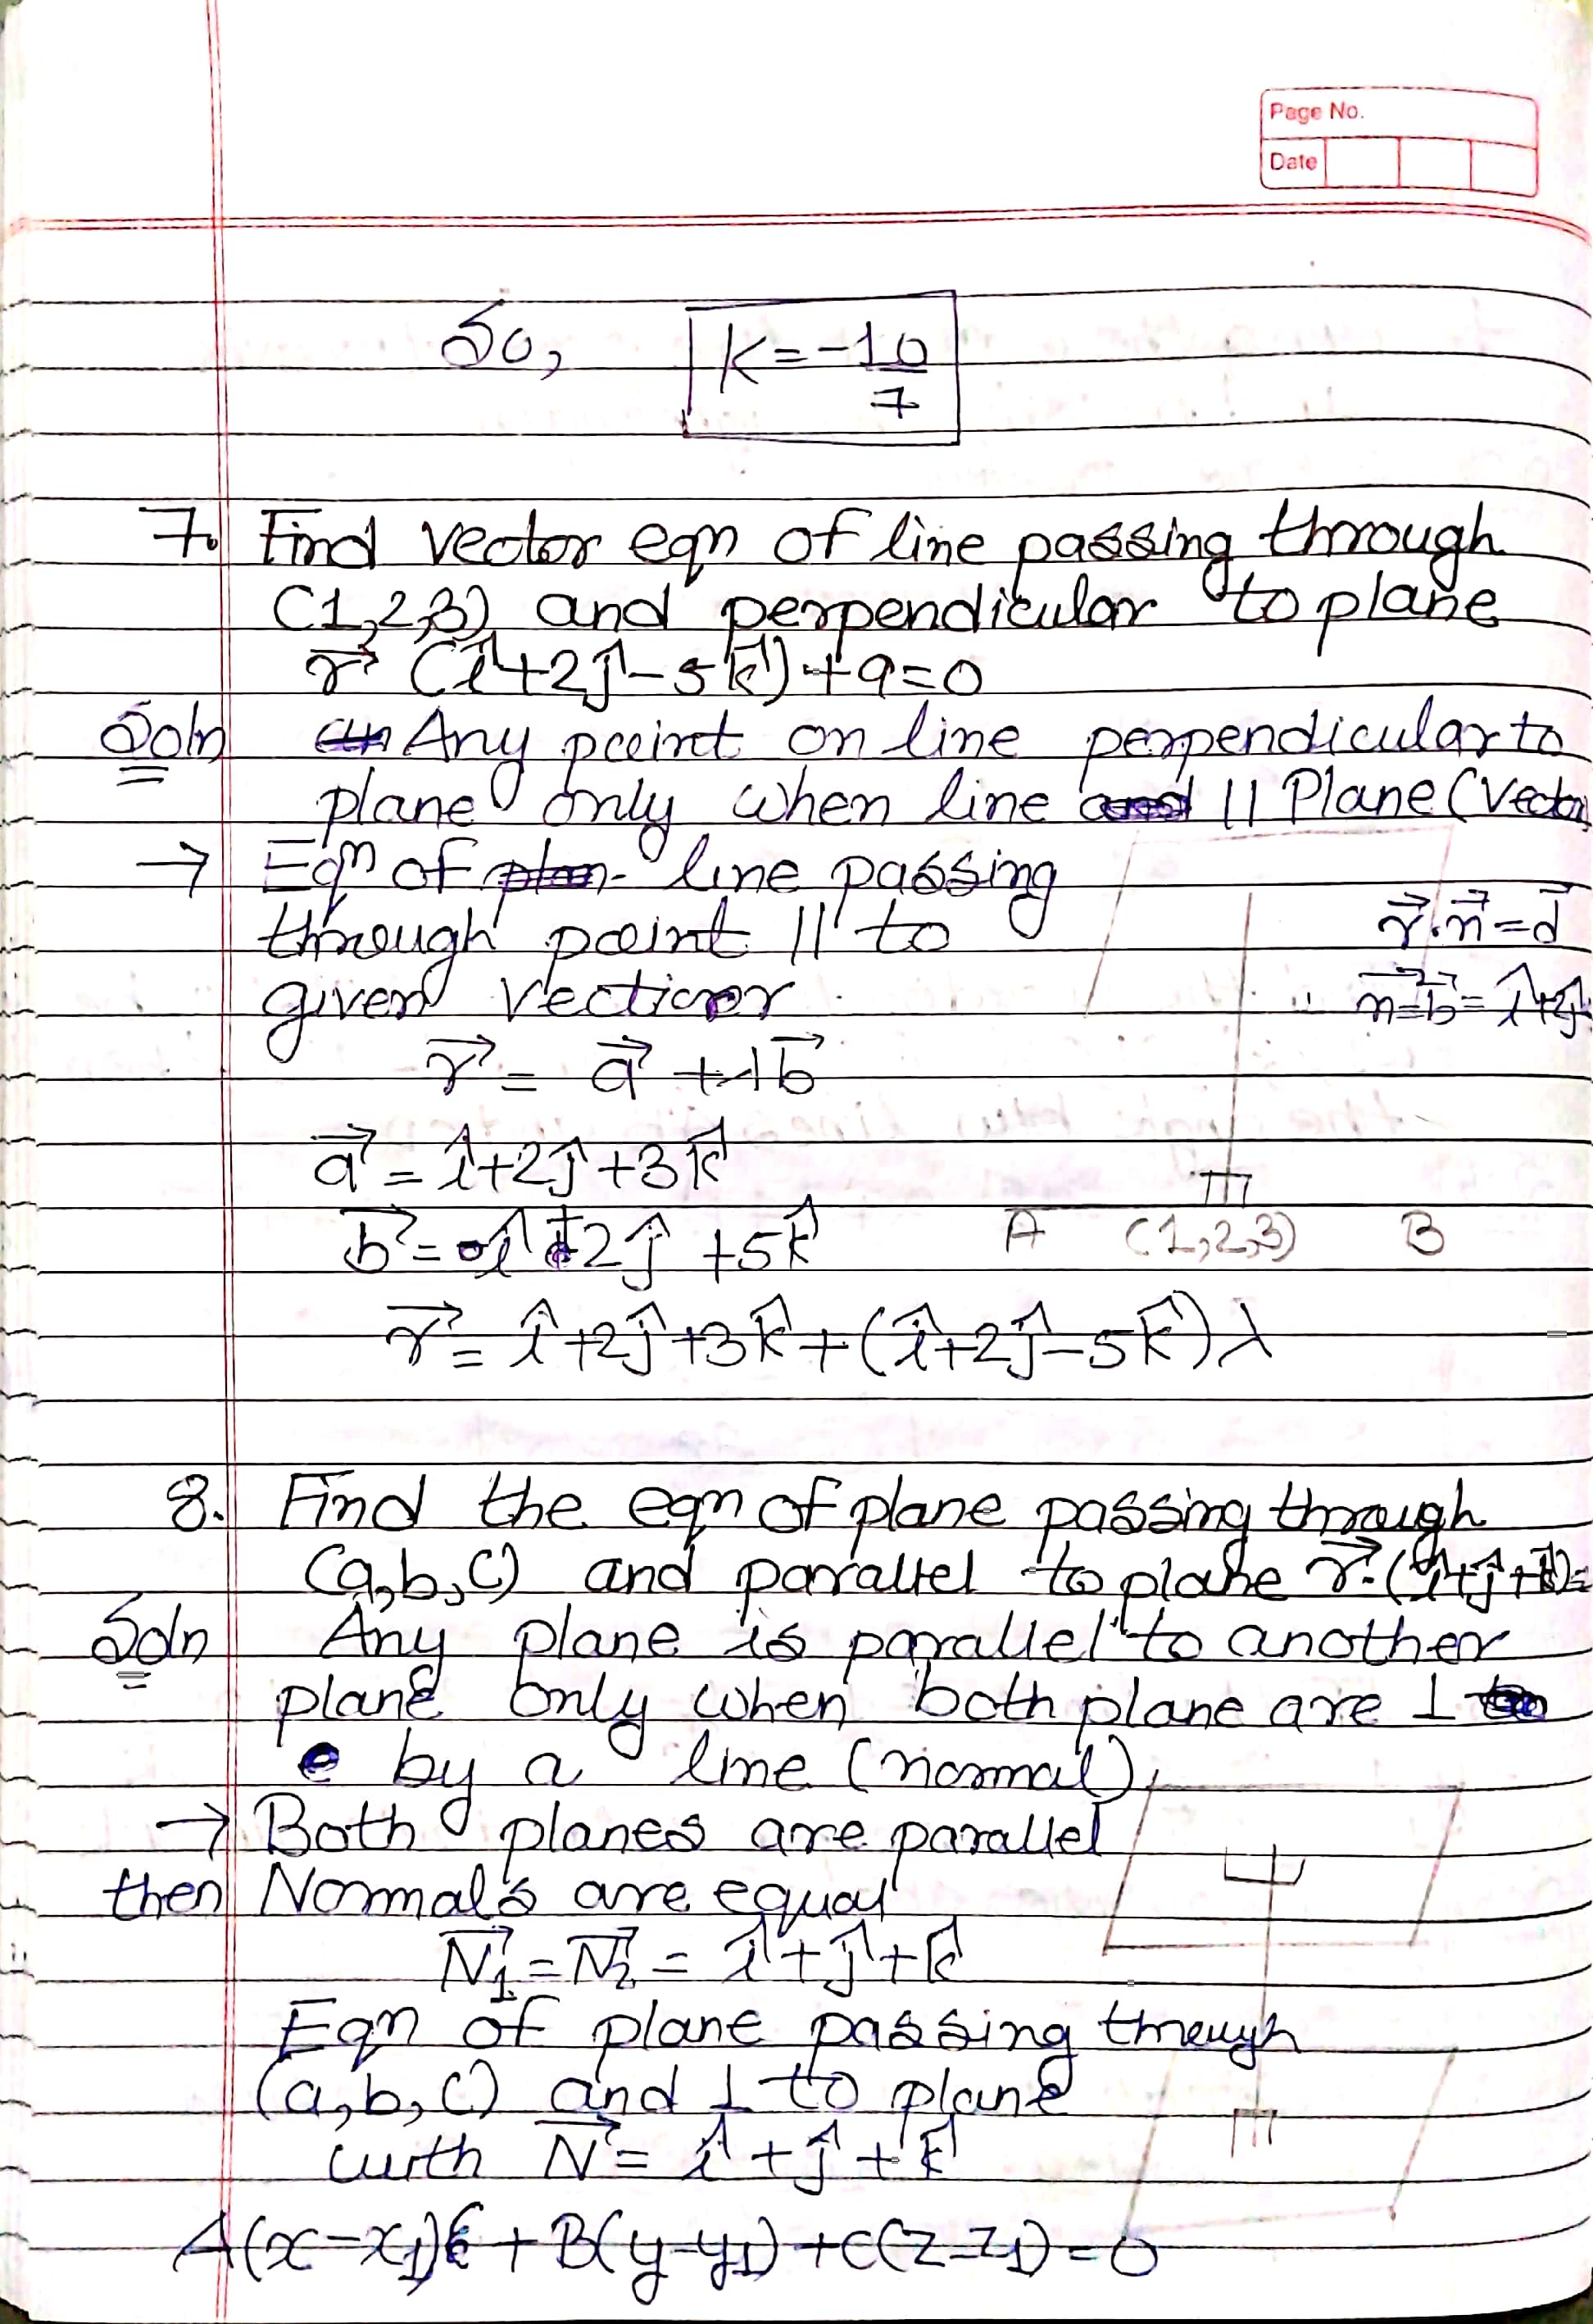 Page No.
Date
So, K = -10/7
7. Find vector eqn of line passing through
(1,2,3) and perpendicular to plane
r⃗ (î+2ĵ-5k̂)+9=0
Soln Any point on line perpendicular to
plane only when line || Plane (Vector
→ Eqn of line passing
through point || to
given vector
r⃗.n⃗=d⃗
n⃗=b⃗=î+2ĵ
r⃗ = a⃗ + λb⃗
a⃗ = î+2ĵ+3k̂
b⃗ = î+2ĵ +5k̂
A (1,2,3) B
r⃗ = î+2ĵ+3k̂+(î+2ĵ-5k̂)λ
8. Find the eqn of plane passing through
(a,b,c) and parallel to plane r⃗.(î+ĵ+k̂)=
Soln Any plane is parallel to another
plane only when both plane are ⊥
by a line (normal)
→ Both planes are parallel
then Normals are equal
N⃗1 = N⃗2 = î+ĵ+k̂
Eqn of plane passing through
(a,b,c) and ⊥ to plane
with N⃗ = î+ĵ+k̂
A(x-x1) + B(y-y1) + C(z-z1) = 0